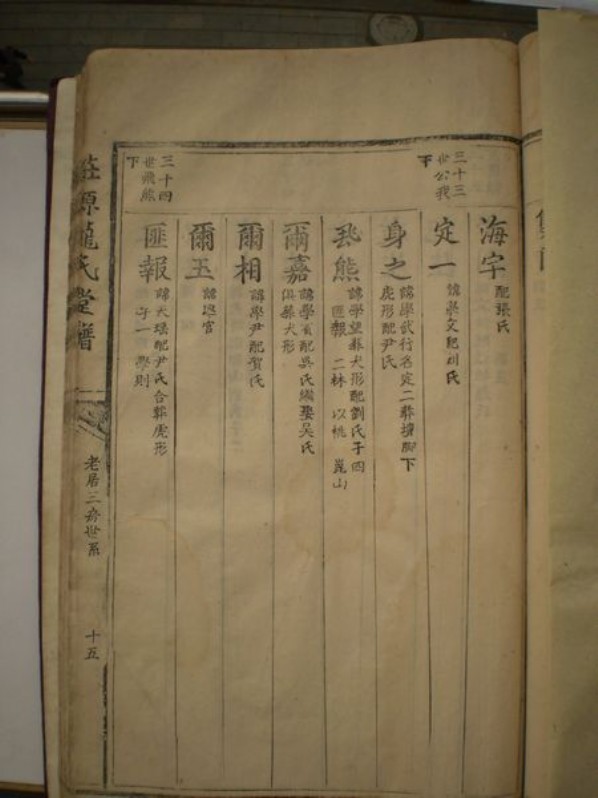 三十三
世公我
下
海宇
配張氏
定一
諱學文配刘氏
身之
諱學武行名定二葬擴脚下
虎形配尹氏
熊
諱學望葬犬形配劉氏子四
匪報 二林 以桃 崑山
爾嘉
諱學配吳氏繼娶吴氏
俱葬犬形
爾相
諱學尹配賀氏
爾玉
諱進官
三十四
世飛熊
下
匪報
諱大瑤配尹氏合葬虎形
子一 學則
莊源龍氏堂譜
老居三房世系
十五